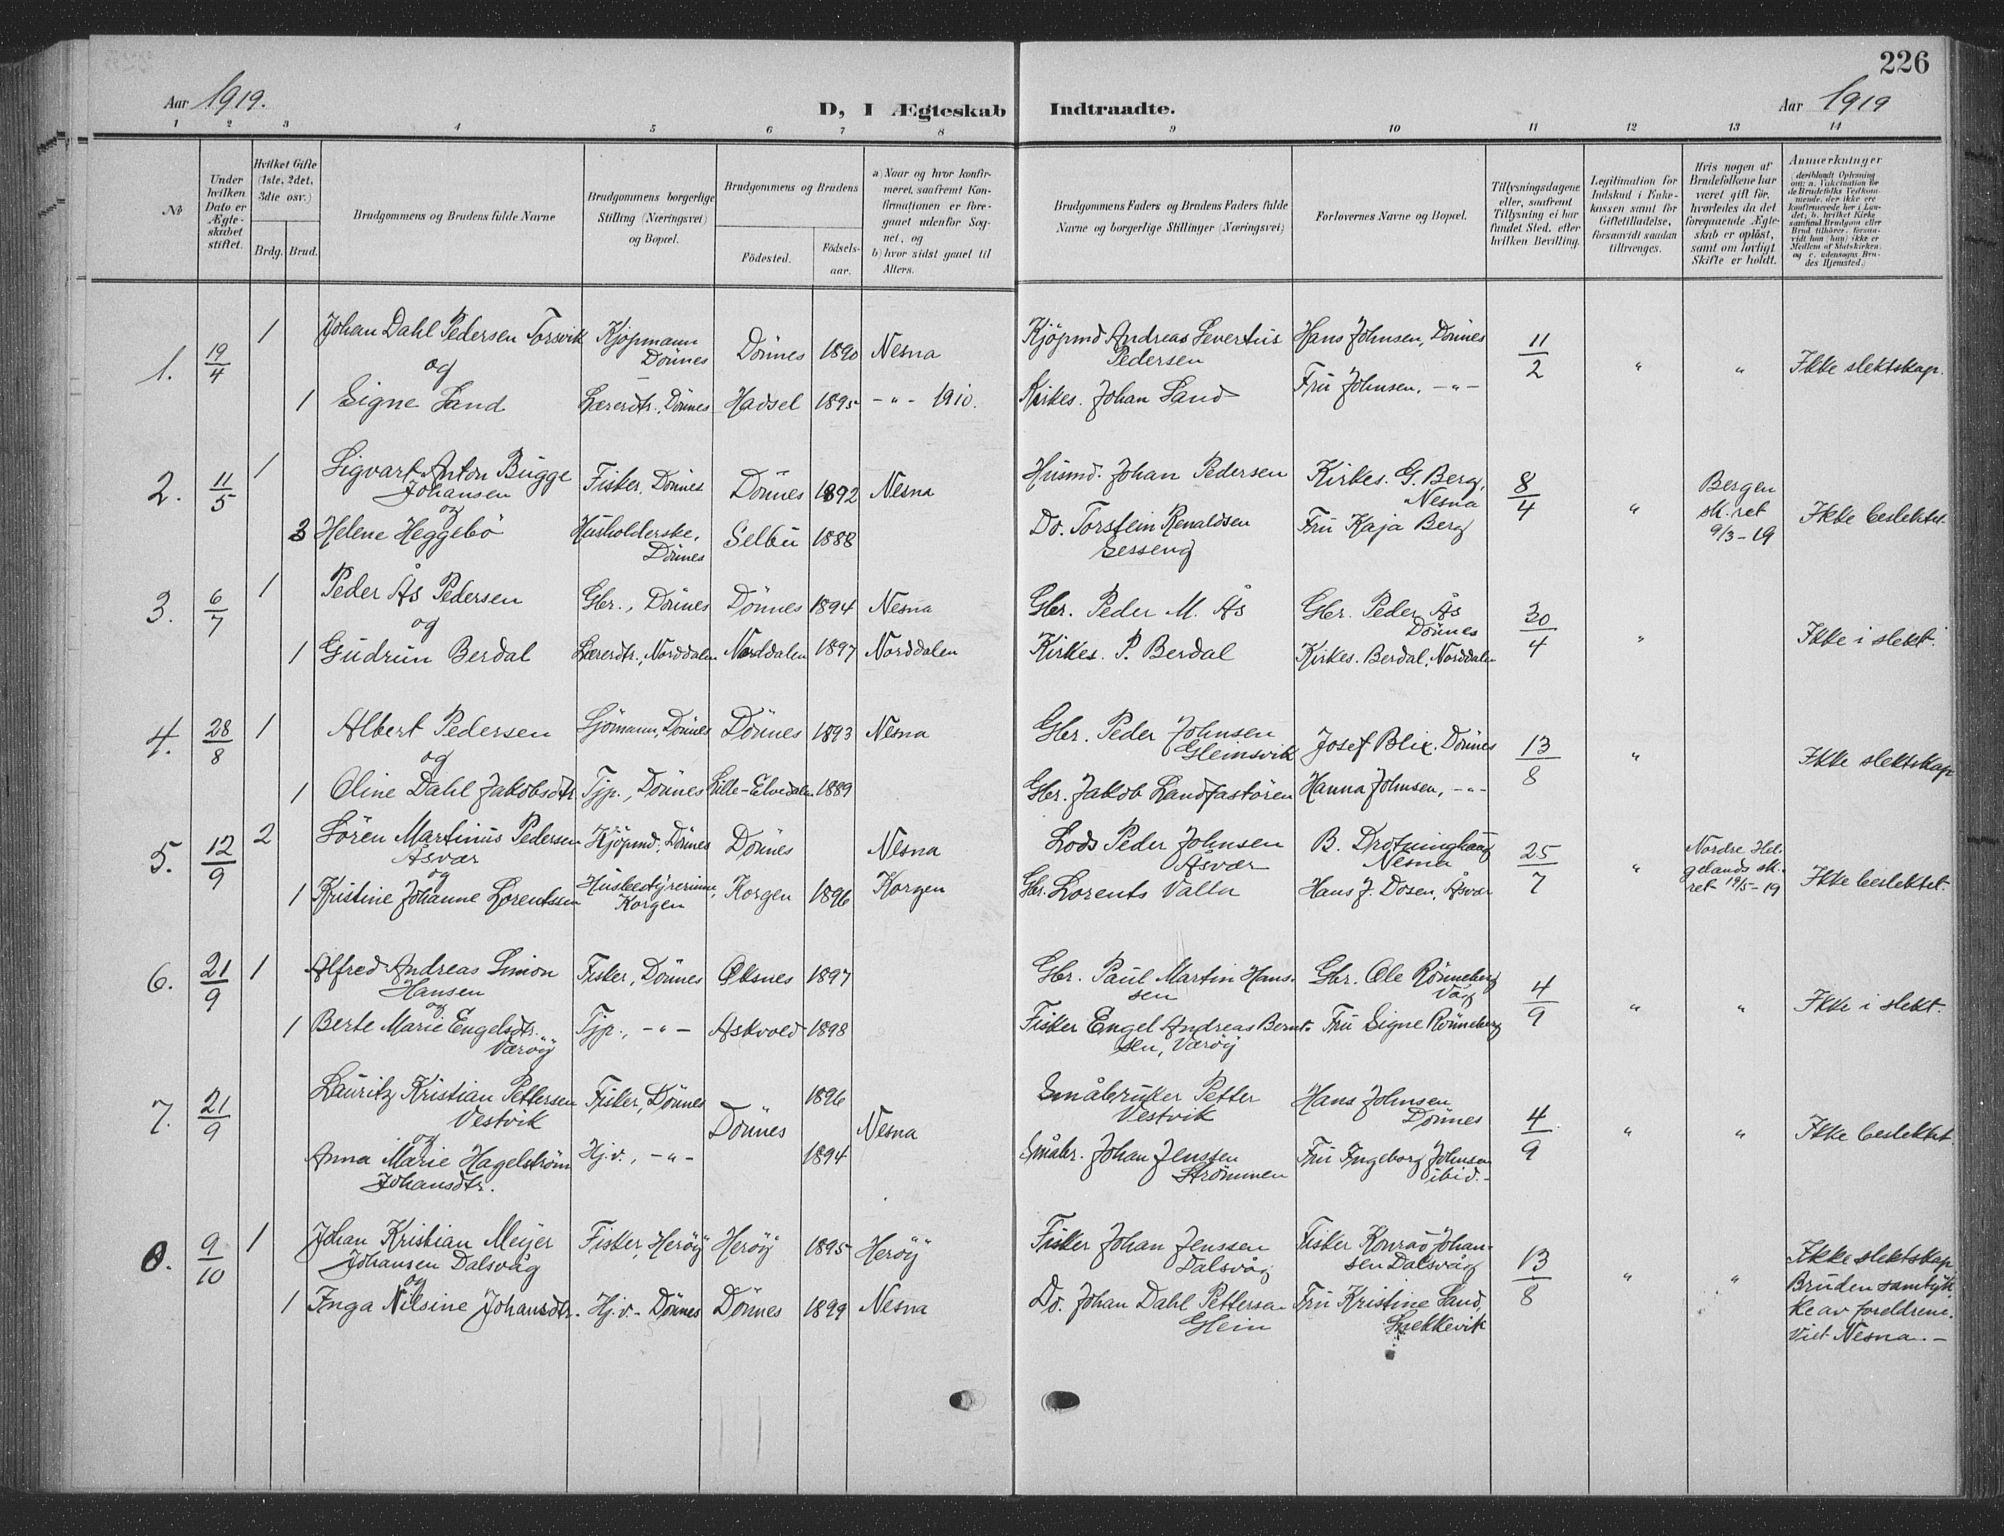 226
Aar 1919.
D, I Ægteskab Indtraadte.
Aar 1919
1 2 3 4 5 6 7 8 9 10 11 12 13 14
No
Under hvilken Dato er Ægteskabet stiftet.
Hvilket Gifte (1ste, 2det, 3die osv.)
Brdg. Brud.
Brudgommens og Brudens fulde Navne
Brudgommens borgerlige Stilling (Næringsvei) og Bopæl.
Brudgommens og Brudens
Födested.
Födselsaar.
a) Naar og hvor konfirmeret, saafremt Konfirmationen er foregaaet udenfor Sognet, og
b) hvor sidst gaaet til Alters.
Brudgommens Faders og Brudens Faders fulde Navne og borgerlige Stillinger (Næringsvei)
Forlovernes Navne og Bopæl.
Tillysningsdagene eller, saafremt Tillysning ei har fundet Sted, efter hvilken Bevilling.
Legitimation for Indskud i Enkekassen samt for Giftetilladelse, forsaavidt saadan tiltrænges.
Hvis nogen af Brudefolkene har været gift för, hvorledes da det foregaaende Ægteskab er oplöst, samt om lovligt Skifte er holdt.
Anmerkninger (deriblandt Oplysning om: a. Vakcination for de Brudefolks Vedkommende, der ikke ere konfirmerede her i Landet; b. hvilket Kirkesamfund Brudgom eller Brud tilhörer, forsaavidt han (hun) ikke er Medlem af Statskirken, og c. udensogns Brudes Hjemsted.)
1. 19/4 1 Johan Dahl Pedersen Forsvik Kjöpmann Dönnes Dönnes 1890 Nesna Kjöpmd Andreas Severtus Pedersen Hans Johnsen, Dönnes 11/2 " " Ikke slektskap.
og
1 Signe Sand Lærerdtr., Dönnes Hadsel 1895 -"- 1910. Kirkes. Johan Sand Fru Johnsen, -"-
2. 11/5 1 Sigvart Anton Bugge Johansen Fisker, Dönnes Dönnes 1892 Nesna Husmd. Johan Pedersen Kirkes. G. Berg, Nesna 8/4 " Bergen sk. ret 9/3-19 Ikke beslektet.
og
3 Helene Heggebö Husholderske, Dönnes Selbu 1888 Do. Torstein Renaldsen Fru Kaja Berg
3. 6/7 1 Peder Ås Pedersen Gbr., Dönnes Dönnes 1894 Nesna Gbr. Peder M. Ås Gbr. Peder Ås Dönnes 30/4 " Ikke i slekt.
og
1 Gudrun Berdal Lærerdtr., Norddalen Norddalen 1897 Norddalen Kirkes. P. Berdal Kirkes. Berdal, Norddalen
4. 28/8 1 Albert Pedersen Sjömann, Dönnes Dönnes 1893 Nesna Gbr. Peder Johnsen Gleinsvik Josef Blix, Dönnes 13/8 " Ikke slektskap
og
1 Oline Dahl Jakobsdtr Tjp., Dönnes Lille-Elvedalen 1889 Gbr. Jakob Landfastören Hanna Johnsen, -"-
5. 12/9 2 Sören Martinus Pedersen Åsvær Kjöpmd, Dönnes Dönnes Nesna Lods Peder Johnsen Åsvær B. Drotninghaug Nesna 25/7 " Nordre Helgelands sk. ret 19/5-19 Ikke beslektet.
og
1 Kristine Johanne Lorentsen Husbestyrerinne, Korgen Korgen 1896 Korgen Gbr. Lorents Valla Hans J. Dosen, Åsvær
6. 21/9 1 Alfred Andreas Simon Hansen Fisker, Dönnes Öksnes 1897 Gbr. Paul Martin Hanssen Gbr. Ole Rönneberg Våg 4/9 " " Ikke i slekt.
og
1 Berte Marie Engelsdtr. Væröy Tjp., -"- Askvoed 1898 Fisker Engel Andreas Berntsen, Væröy Fru Signe Rönneberg
7. 21/9 Lauritz Kristian Pettersen Vestvik Fisker, Dönnes Dönnes 1896 Nesna Småbruker Petter Vestvik Hans Johnsen Dönnes 4/9 " " Ikke beslektet.
og
Anna Marie Hagelström Johansdtr. Hj.v., -"- 1894 Småbr. Johan Jenssen Strömmen Fru Ingeborg Johnsen ibid.-
8. 9/10 1 Johan Kristian Meijer Johansen Dalsvåg Fisker, Heröy Heröy 1895 Heröy Fisker Johan Jenssen Dalsvåg Fisker Konrad Johansen Dalsvåg 13/8 " " Ikke slektskap
og
1 Inga Nilsine Johansdtr. Hj.v. - Dönnes Dönnes 1899 Nesna Do. Johan Dahl Pettersen Glein Fru Kristine Sand, Snekkevik Bruden samtykke av foreldrene. Viet Nesna.-